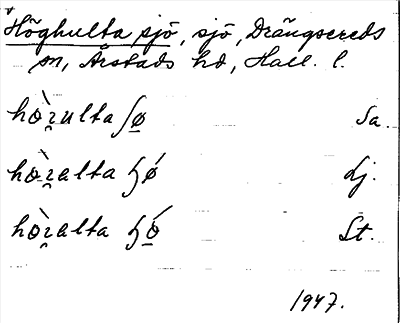 Höghulta sjö, sjö, Drängsereds
sn, Årstads hd, Hall. l.
hö̀rulta ʃø Sa.
hö̀ralta ɧǿ Lj.
hö̀ralta ɧǿ St.
1947.